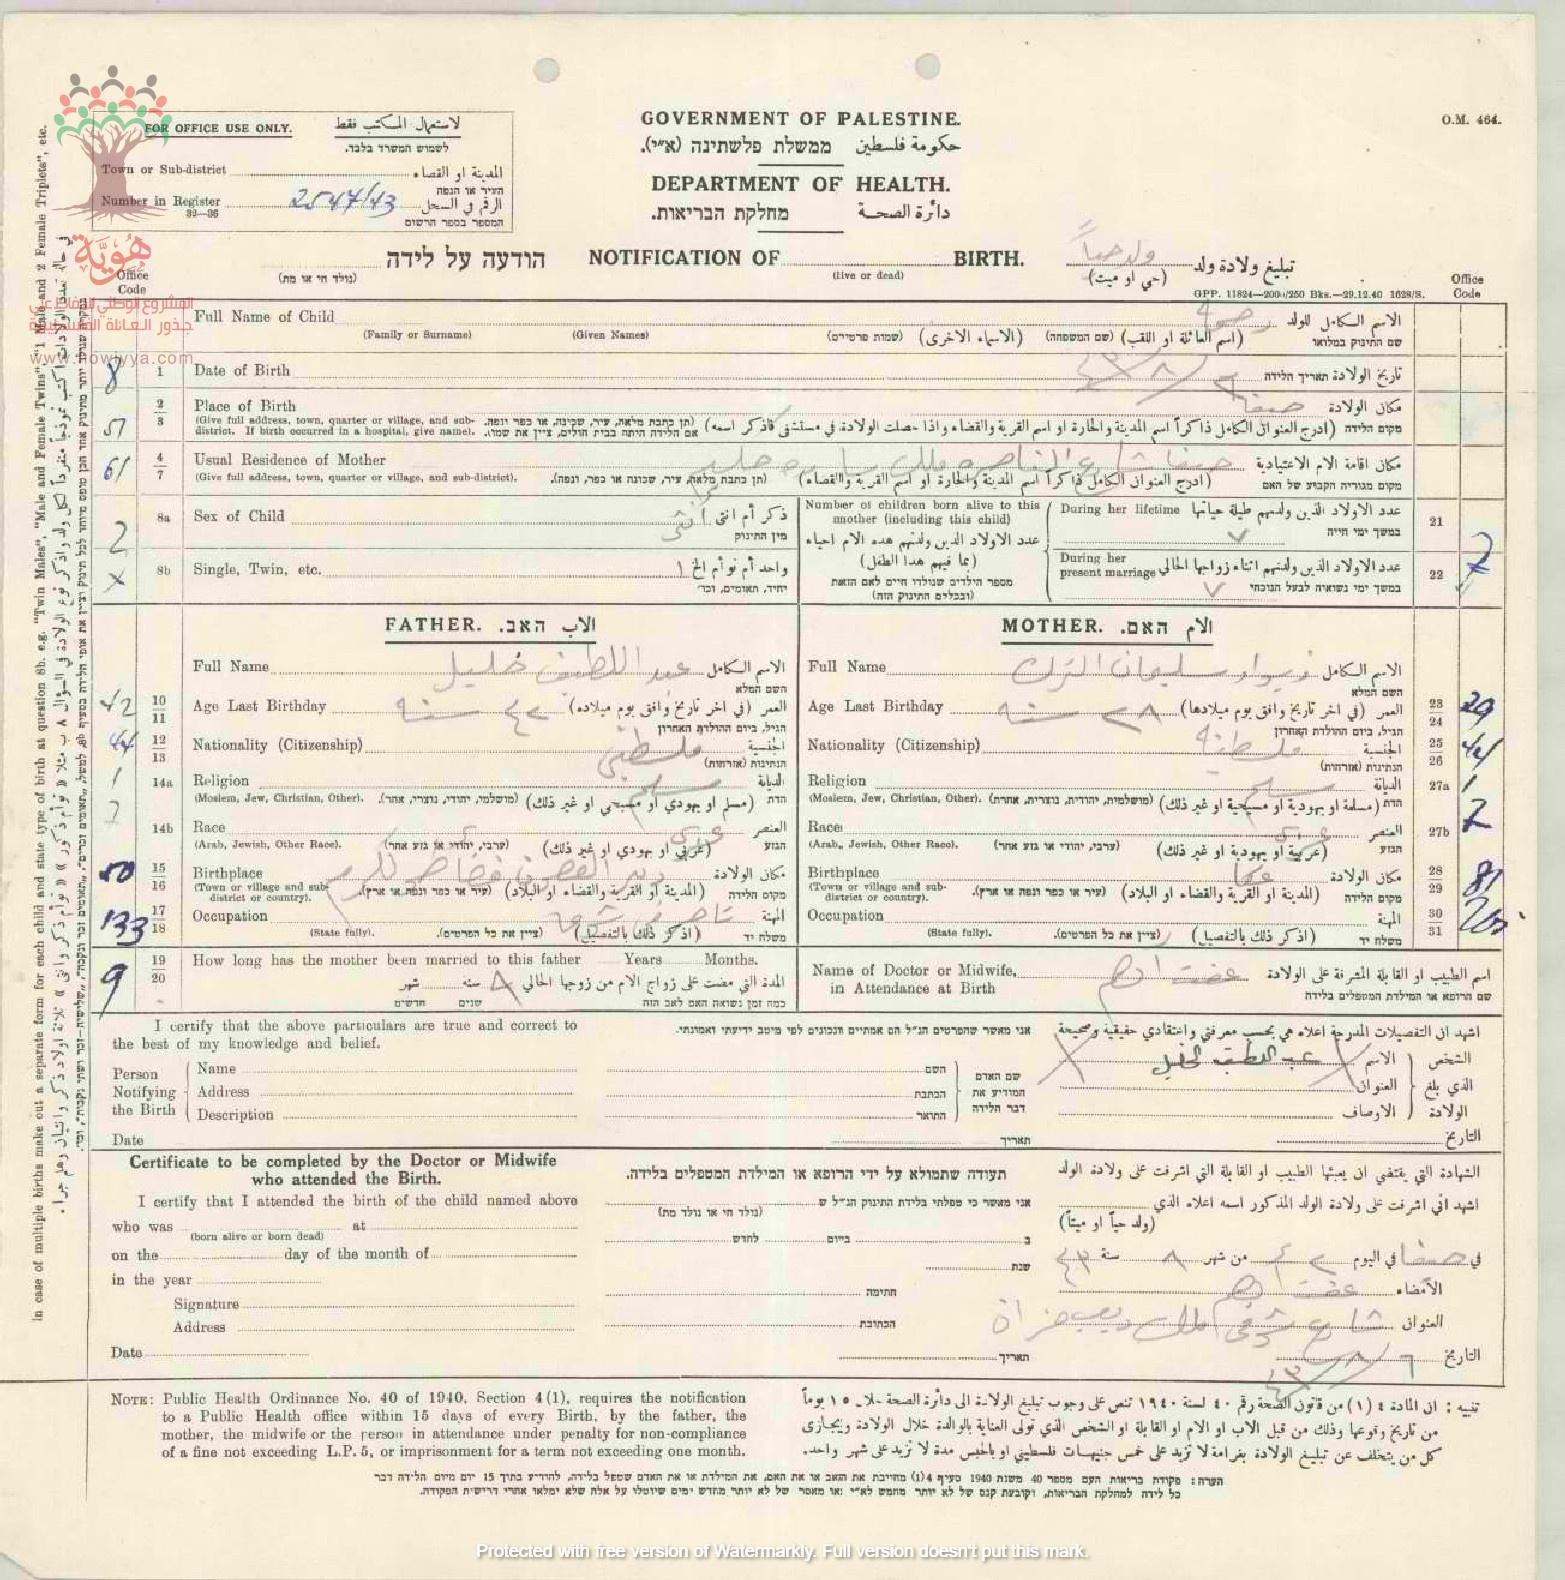 O.M. 464.
FOR OFFICE USE ONLY. لاستعمال المكتب فقط
לשמוש המשרד בלבד.
Town or Sub-district المدينة او القضاء
העיר או הנפה
Number in Register 2547/43 الرقم في السجل
32—36 המספר בספר הרשום
هُوِيَّة
المشروع الوطني للحفاظ على
جذور العائلة الفلسطينية
www.howiyya.com
GOVERNMENT OF PALESTINE.
حكومة فلسطين ממשלת פלשתינה (א״י).
DEPARTMENT OF HEALTH.
دائرة الصحة מחלקת הבריאות.
הודעה על לידה NOTIFICATION OF BIRTH. ولد حياً تبليغ ولادة ولد
(נולד חי או מת) (live or dead) (حي او ميت)
GPP. 11824—2000/250 Bks.—29.12.40 1628/S.
Office Code
Office Code
Full Name of Child الاسم الكامل للولد
(Family or Surname) (Given Names) (שמות פרטיים) (الاسماء الاخرى) (שם המשפחה) (اسم العائلة او اللقب) שם התינוק במלואו
8 1 Date of Birth تاريخ الولادة תאריך הלידה
51 2 3 Place of Birth حيفا مكان الولادة
(Give full address, town, quarter or village, and sub-district. If birth occurred in a hospital, give name). (תן כתבת מלאה, עיר, שכונה, או כפר ונפה. אם הלידה היתה בבית חולים, ציין את שמו). (ادرج العنوان الكامل ذاكراً اسم المدينة والحارة او اسم القرية والقضاء واذا حصلت الولادة في مستشفى فاذكر اسمه) מקום הלידה
61 4 7 Usual Residence of Mother حيفا شارع الناصره ملك مكان اقامة الام الاعتيادية
(Give full address, town, quarter or village, and sub-district). (תן כתבת מלאה, עיר, שכונה או כפר, ונפה). (ادرج العنوان الكامل ذاكراً اسم المدينة والحارة او اسم القرية والقضاء) מקום מגוריה הקבוע של האם
2 8a Sex of Child انثى ذكر أم انثى
מין התינוק
x 8b Single, Twin, etc. ١ واحد أم توأم الخ
יחיד, תאומים, וכו׳
Number of children born alive to this mother (including this child)
عدد الاولاد الذين ولدتهم هذه الام احياء
(بما فيهم هذا الطفل)
מספר הילדים שנולדו חיים לאם הזאת
(ובכללם התינוק הזה)
During her lifetime عدد الاولاد الذين ولدتهم طيلة حياتها 21
٧ במשך ימי חייה
During her present marriage عدد الاولاد الذين ولدتهم اثناء زواجها الحالي 22 7
٧ במשך ימי נשואיה לבעל הנוכחי
FATHER. الاب האב.
Full Name عبد اللطيف خليل الاسم الكامل
השם המלא
42 10 11 Age Last Birthday ٤٢ سنه العمر (في آخر تاريخ وافق يوم ميلاده)
הגיל, ביום ההולדת האחרון
44 12 13 Nationality (Citizenship) فلسطيني الجنسية
הנתינות (אזרחות)
1 14a Religion مسلم الديانة
(Moslem, Jew, Christian, Other). (מושלמי, יהודי, נוצרי, אחר). (مسلم او يهودي او مسيحي او غير ذلك) הדת
7 14b Race عربي العنصر
(Arab, Jewish, Other Race). (ערבי, יהודי או גזע אחר) (عربي او يهودي او غير ذلك) הגזע
50 15 16 Birthplace مكان الولادة
(Town or village and sub-district or country). (עיר או כפר ונפה או ארץ). (المدينة او القرية والقضاء او البلاد) מקום הלידה
133 17 18 Occupation المهنة
(State fully). (ציין את כל הפרטים). (اذكر ذلك بالتفصيل) משלח יד
MOTHER. الام האם.
Full Name سليمان الترك الاسم الكامل
השם המלא
Age Last Birthday ٢٨ سنه العمر (في آخر تاريخ وافق يوم ميلادها) 23 24 29
הגיל, ביום ההולדת האחרון
Nationality (Citizenship) فلسطينيه الجنسية 25 26 44
הנתינות (אזרחות)
Religion الديانة 27a 1
(Moslem, Jew, Christian, Other). (מושלמית, יהודית, נוצרית, אחרת) (مسلمة او يهودية او مسيحية او غير ذلك) הדת
Race: عربي العنصر 27b 7
(Arab, Jewish, Other Race). (ערבי, יהודי או גזע אחר) (عربية او يهودية او غير ذلك) הגזע
Birthplace عكا مكان الولادة 28 29 81
(Town or village and sub-district or country). (עיר או כפר ונפה או ארץ). (المدينة او القرية والقضاء او البلاد) מקום הלידה
Occupation المهنة 30 31
(State fully). (ציין את כל הפרטים). (اذكر ذلك بالتفصيل) משלח יד
9 19 20 How long has the mother been married to this father Years Months.
المدة التي مضت على زواج الام من زوجها الحالي ٨ سنه شهر
כמה זמן נשואה האם לאב הזה שנים חדשים
Name of Doctor or Midwife, in Attendance at Birth عفت ادهم اسم الطبيب او القابلة المشرفة على الولادة
שם הרופא או המילדת המטפלים בלידה
I certify that the above particulars are true and correct to the best of my knowledge and belief.
אני מאשר שהפרטים הנ״ל הם אמתיים ונכונים לפי מיטב ידיעתי ואמונתי.
اشهد ان التفصيلات المدرجة اعلاه هي بحسب معرفتي واعتقادي حقيقية وصحيحة
Person Notifying the Birth
Name השם
Address הכתבת
Description התואר
שם האדם המודיע את דבר הלידה
عبد اللطيف الخليل الاسم الشخص
العنوان الذي بلغ
الاوصاف الولادة
Date תאריך التاريخ
Certificate to be completed by the Doctor or Midwife who attended the Birth.
I certify that I attended the birth of the child named above
who was at
(born alive or born dead)
on the day of the month of
in the year
Signature
Address
Date
תעודה שתמולא על ידי הרופא או המילדת המטפלים בלידה.
אני מאשר כי טפלתי בלידת התינוק הנ״ל ש
(נולד חי או נולד מת)
ב ביום לחדש
שנת
חתימה
הכתובת
תאריך
الشهادة التي يقتضي ان يعبئها الطبيب او القابلة التي اشرفت على ولادة الولد
اشهد اني اشرفت على ولادة الولد المذكور اسمه اعلاه الذي
(ولد حياً او ميتاً)
في حيفا في اليوم من شهر ٨ سنة ٤٣
الامضاء عفت ادهم
العنوان شارع
التاريخ ٦/٨/٤٣
NOTE: Public Health Ordinance No. 40 of 1940, Section 4(1), requires the notification
to a Public Health office within 15 days of every Birth, by the father, the
mother, the midwife or the person in attendance under penalty for non-compliance
of a fine not exceeding L.P. 5, or imprisonment for a term not exceeding one month.
تنبيه : ان المادة ٤ (١) من قانون الصحة رقم ٤٠ لسنة ١٩٤٠ تنص على وجوب تبليغ الولادة الى دائرة الصحة خلال ١٥ يوماً
من تاريخ وقوعها وذلك من قبل الاب او الام او القابلة او الشخص الذي تولى العناية بالوالدة خلال الولادة ويجازى
كل من يتخلف عن تبليغ الولادة بغرامة لا تزيد على خمس جنيهات فلسطيني او بالحبس مدة لا تزيد على شهر واحد.
הערה: פקודת בריאות העם מספר 40 משנת 1940 סעיף 4(1) מחייבת את האב או את האם, את המילדת או את האדם שטפל בלידה, להודיע בתוך 15 יום מיום הלידה דבר
כל לידה למחלקת הבריאות,
In case of multiple births make out a separate form for each child and state type of birth at question 8b. e.g. "Twin Males", "Male and Female Twins" "1 Male and 2 Female Triplets", etc.
Protected with free version of Watermarkly. Full version doesn't put this mark.